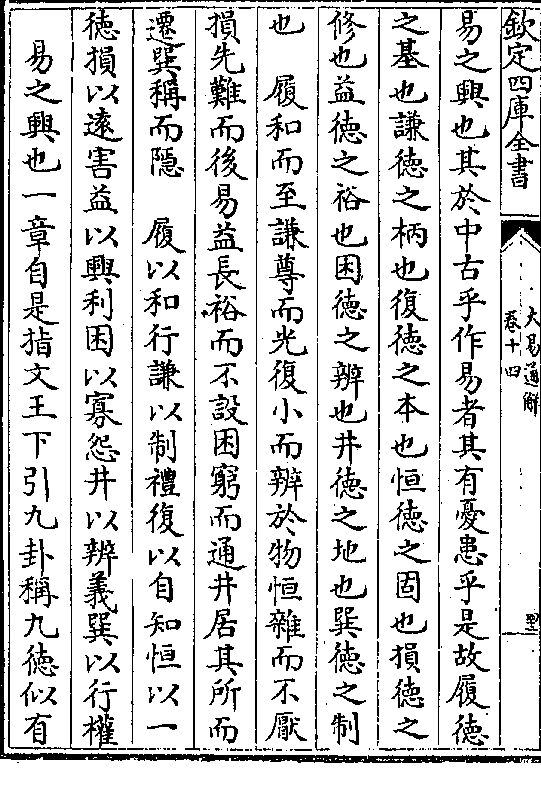 欽定四庫全書
大易通解
卷十四
易之興也其於中古乎作易者其有憂患乎是故履德
之基也謙德之柄也復德之本也恒德之固也損德之
修也益德之裕也困德之辨也井德之地也巽德之制
也　履和而至謙尊而光復小而辨於物恒雜而不厭
損先難而後易益長裕而不設困窮而通井居其所而
遷巽稱而隱　履以和行謙以制禮復以自知恒以一
德損以遠害益以興利困以寡怨井以辨義巽以行權
易之興也一章自是指文王下引九卦稱九德似有